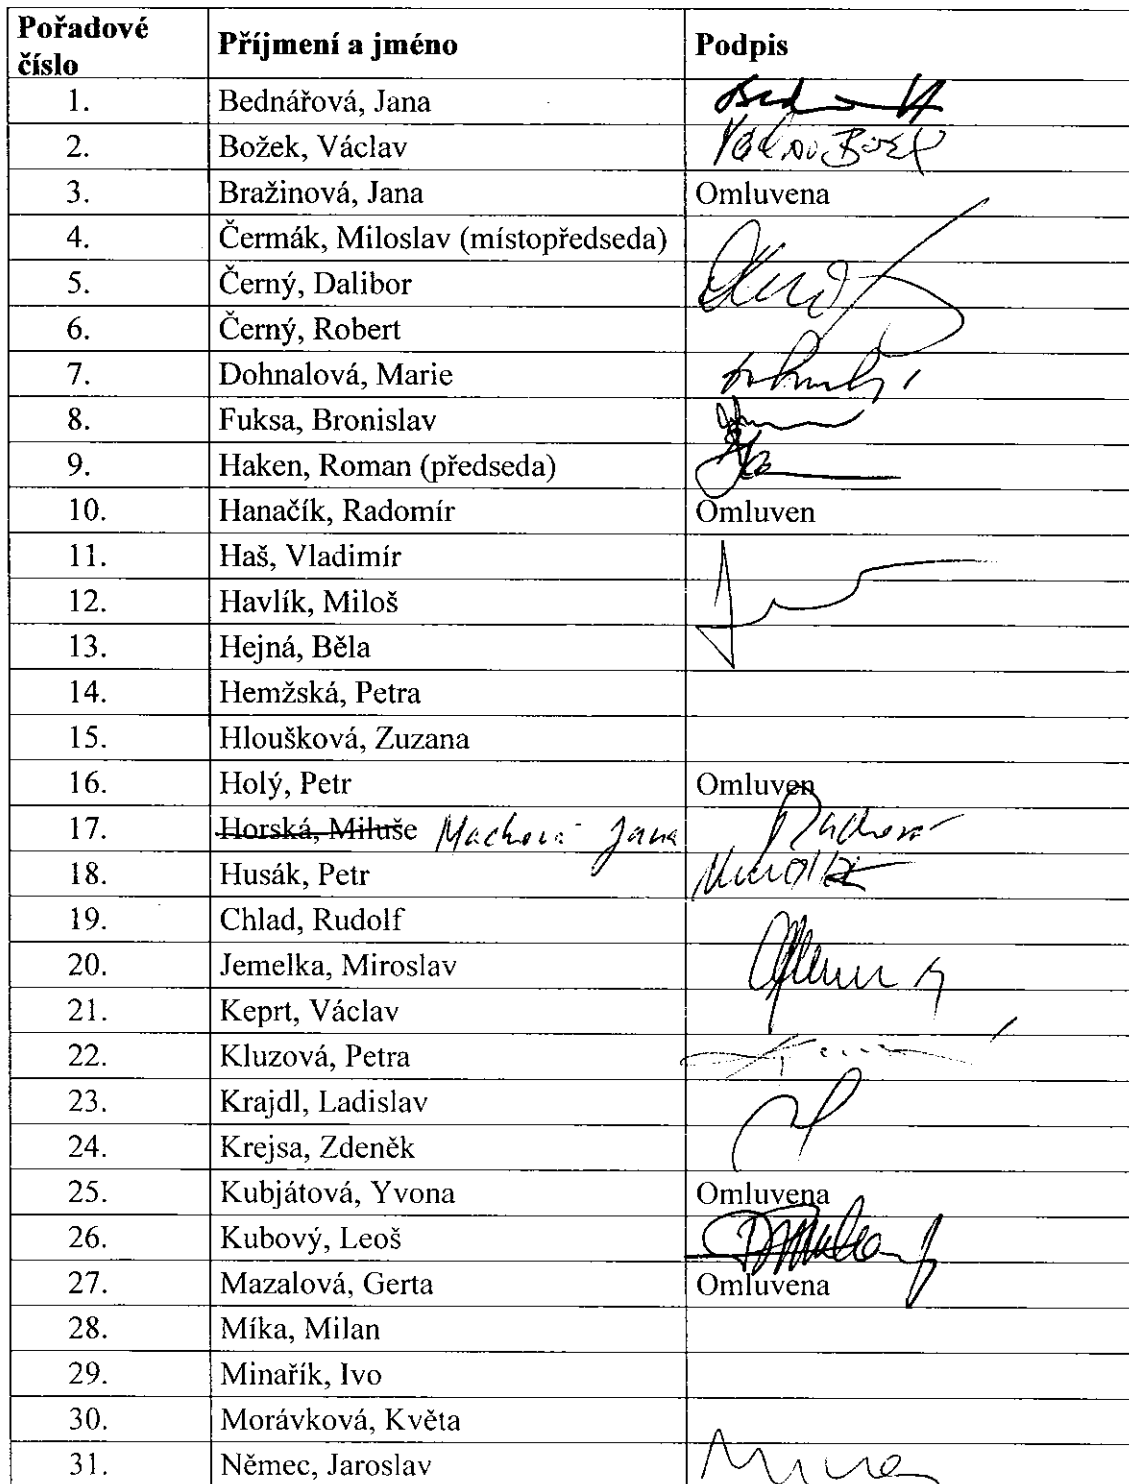 Pořadové číslo Příjmení a jméno Podpis
1. Bednářová, Jana
2. Božek, Václav
3. Bražinová, Jana Omluvena
4. Čermák, Miloslav (místopředseda)
5. Černý, Dalibor
6. Černý, Robert
7. Dohnalová, Marie
8. Fuksa, Bronislav
9. Haken, Roman (předseda)
10. Hanačík, Radomír Omluven
11. Haš, Vladimír
12. Havlík, Miloš
13. Hejná, Běla
14. Hemžská, Petra
15. Hloušková, Zuzana
16. Holý, Petr Omluven
17. Horská, Miluše Machová Jana
18. Husák, Petr
19. Chlad, Rudolf
20. Jemelka, Miroslav
21. Keprt, Václav
22. Kluzová, Petra
23. Krajdl, Ladislav
24. Krejsa, Zdeněk
25. Kubjátová, Yvona Omluvena
26. Kubový, Leoš
27. Mazalová, Gerta Omluvena
28. Míka, Milan
29. Minařík, Ivo
30. Morávková, Květa
31. Němec, Jaroslav